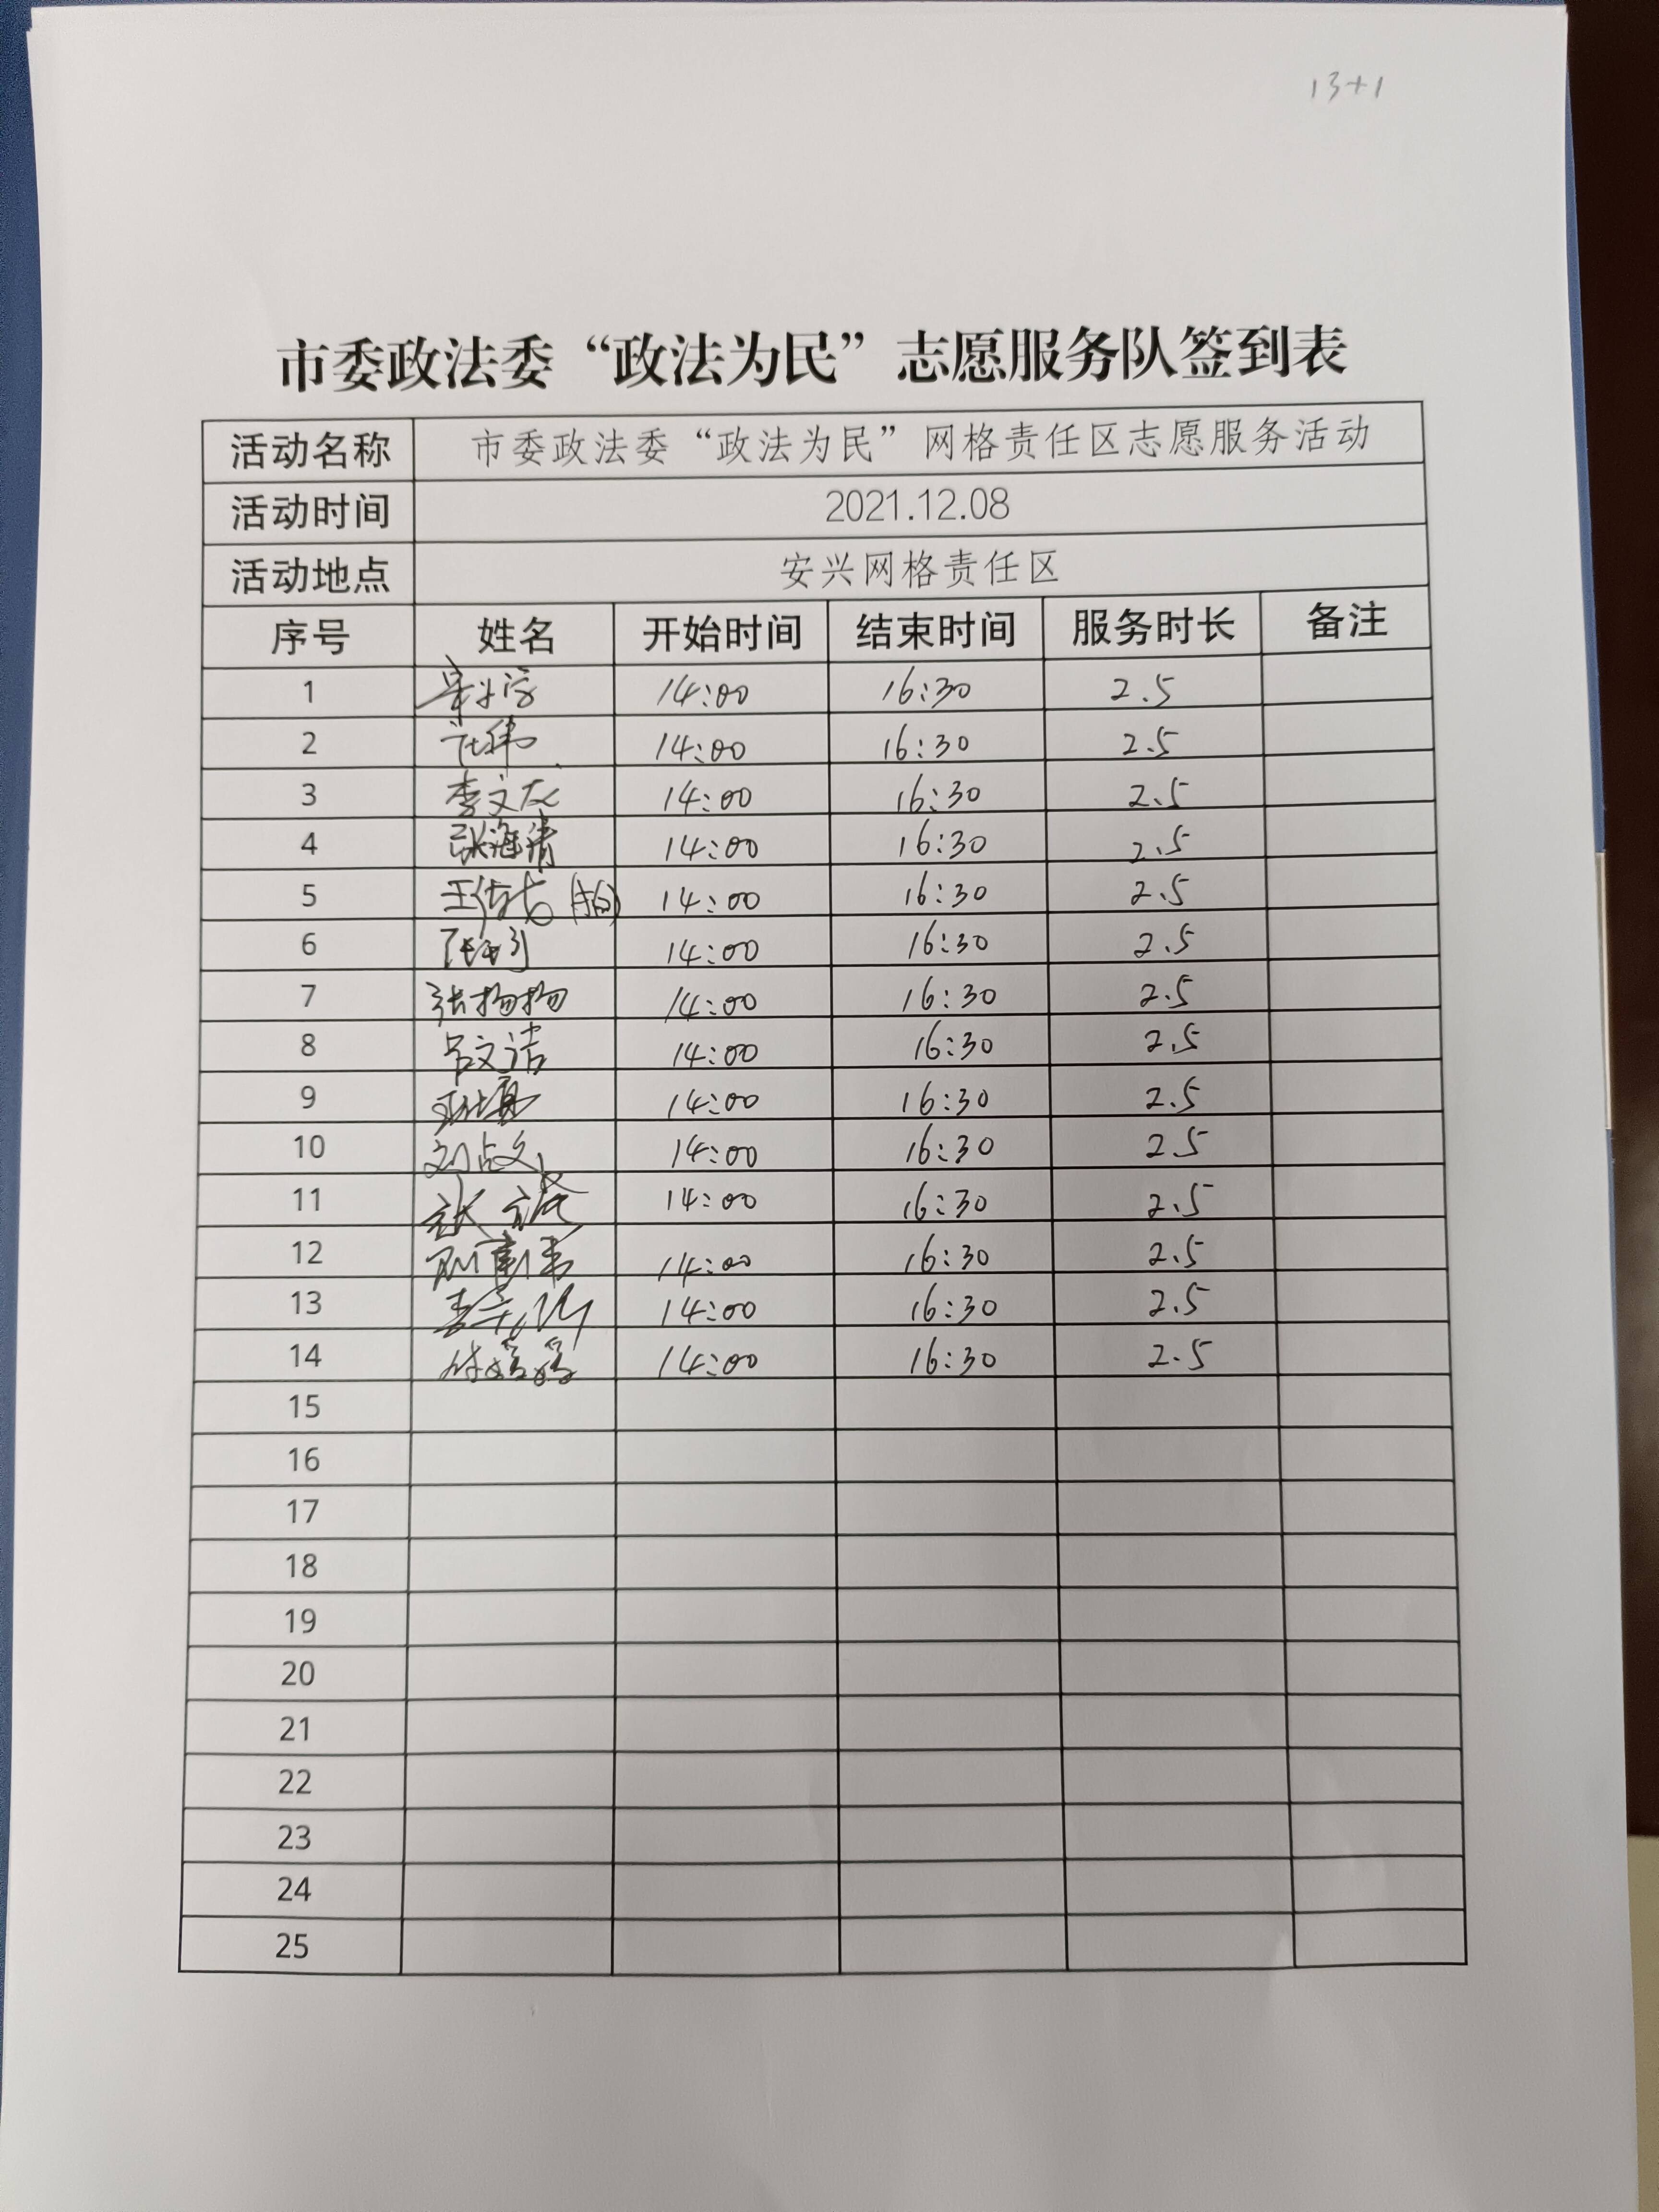 13+1
市委政法委“政法为民”志愿服务队签到表
活动名称 市委政法委“政法为民”网格责任区志愿服务活动
活动时间 2021.12.08
活动地点 安兴网格责任区
序号 姓名 开始时间 结束时间 服务时长 备注
1 14:00 16:30 2.5
2 14:00 16:30 2.5
3 李文友 14:00 16:30 2.5
4 张海清 14:00 16:30 2.5
5 14:00 16:30 2.5
6 14:00 16:30 2.5
7 张扬扬 14:00 16:30 2.5
8 吕文洁 14:00 16:30 2.5
9 14:00 16:30 2.5
10 刘占文 14:00 16:30 2.5
11 14:00 16:30 2.5
12 14:00 16:30 2.5
13 14:00 16:30 2.5
14 14:00 16:30 2.5
15
16
17
18
19
20
21
22
23
24
25